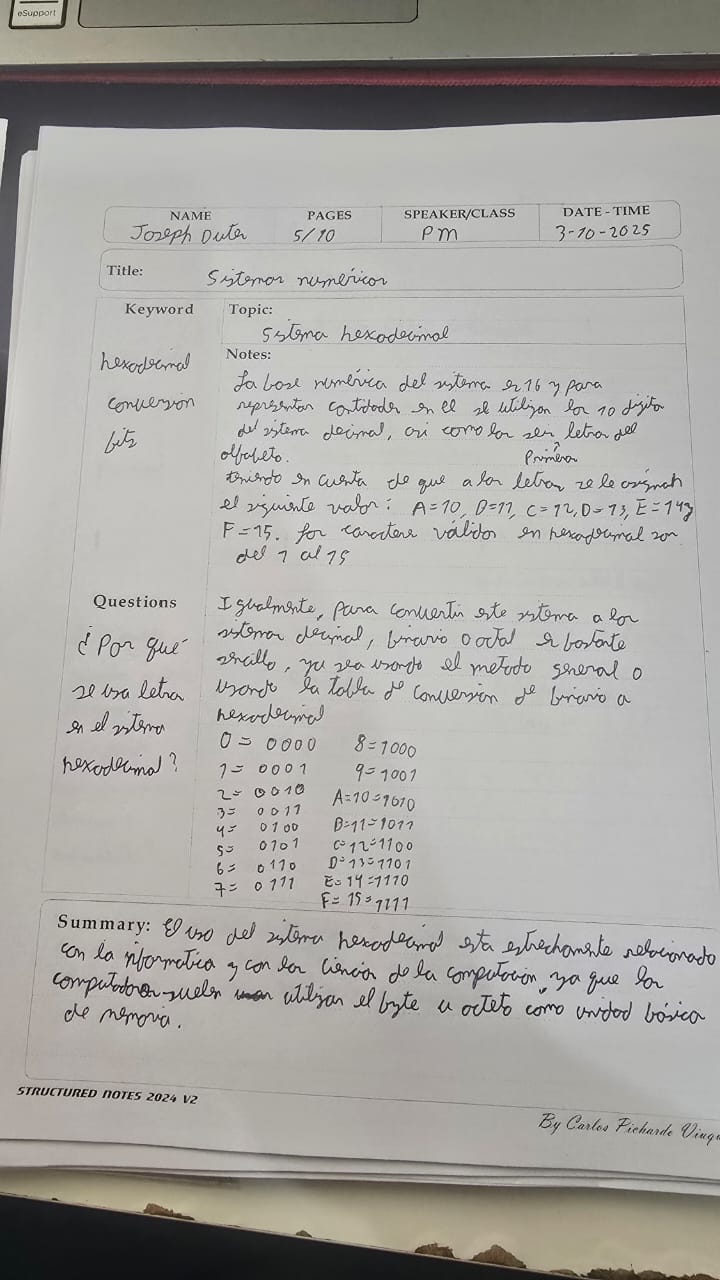 eSupport
NAME PAGES SPEAKER/CLASS DATE - TIME
Joseph Duter 5/10 PM 3-10-2025
Title: Sistemas numéricos
Keyword
Topic:
Sistema hexadecimal
hexadecimal
conversion
bits
Notes:
La base numérica del sistema es 16 y para
representar cantidades en el se utilizan los 10 digitos
del sistema decimal, asi como las seis letras del
Primeras
alfabeto.
teniendo en cuenta de que a las letras se le asignan
el siguiente valor: A=10, B=11, C=12, D=13, E=14 y
F=15. los caracteres válidos en hexadecimal son
del 1 al 15
Questions
¿Por qué
se usa letra
en el sistema
hexadecimal?
Igualmente, para convertir este sistema a los
sistemas decimal, binario o octal es bastante
sencillo, ya sea usando el metodo general o
usando la tabla de conversion de binario a
hexadecimal
0 = 0000 8=1000
1= 0001 9=1001
2= 0010 A=10=1010
3= 0011 B=11=1011
4= 0100 C=12=1100
5= 0101 D=13=1101
6= 0110 E=14=1110
7= 0111 F=15=1111
Summary: El uso del sistema hexadecimal esta estrechamente relacionado
con la informatica y con las ciencias de la computacion, ya que las
computadoras suelen utilizar el byte u octeto como unidad básica
de memoria.
STRUCTURED NOTES 2024 V2
By Carlos Pichardo Viuqu